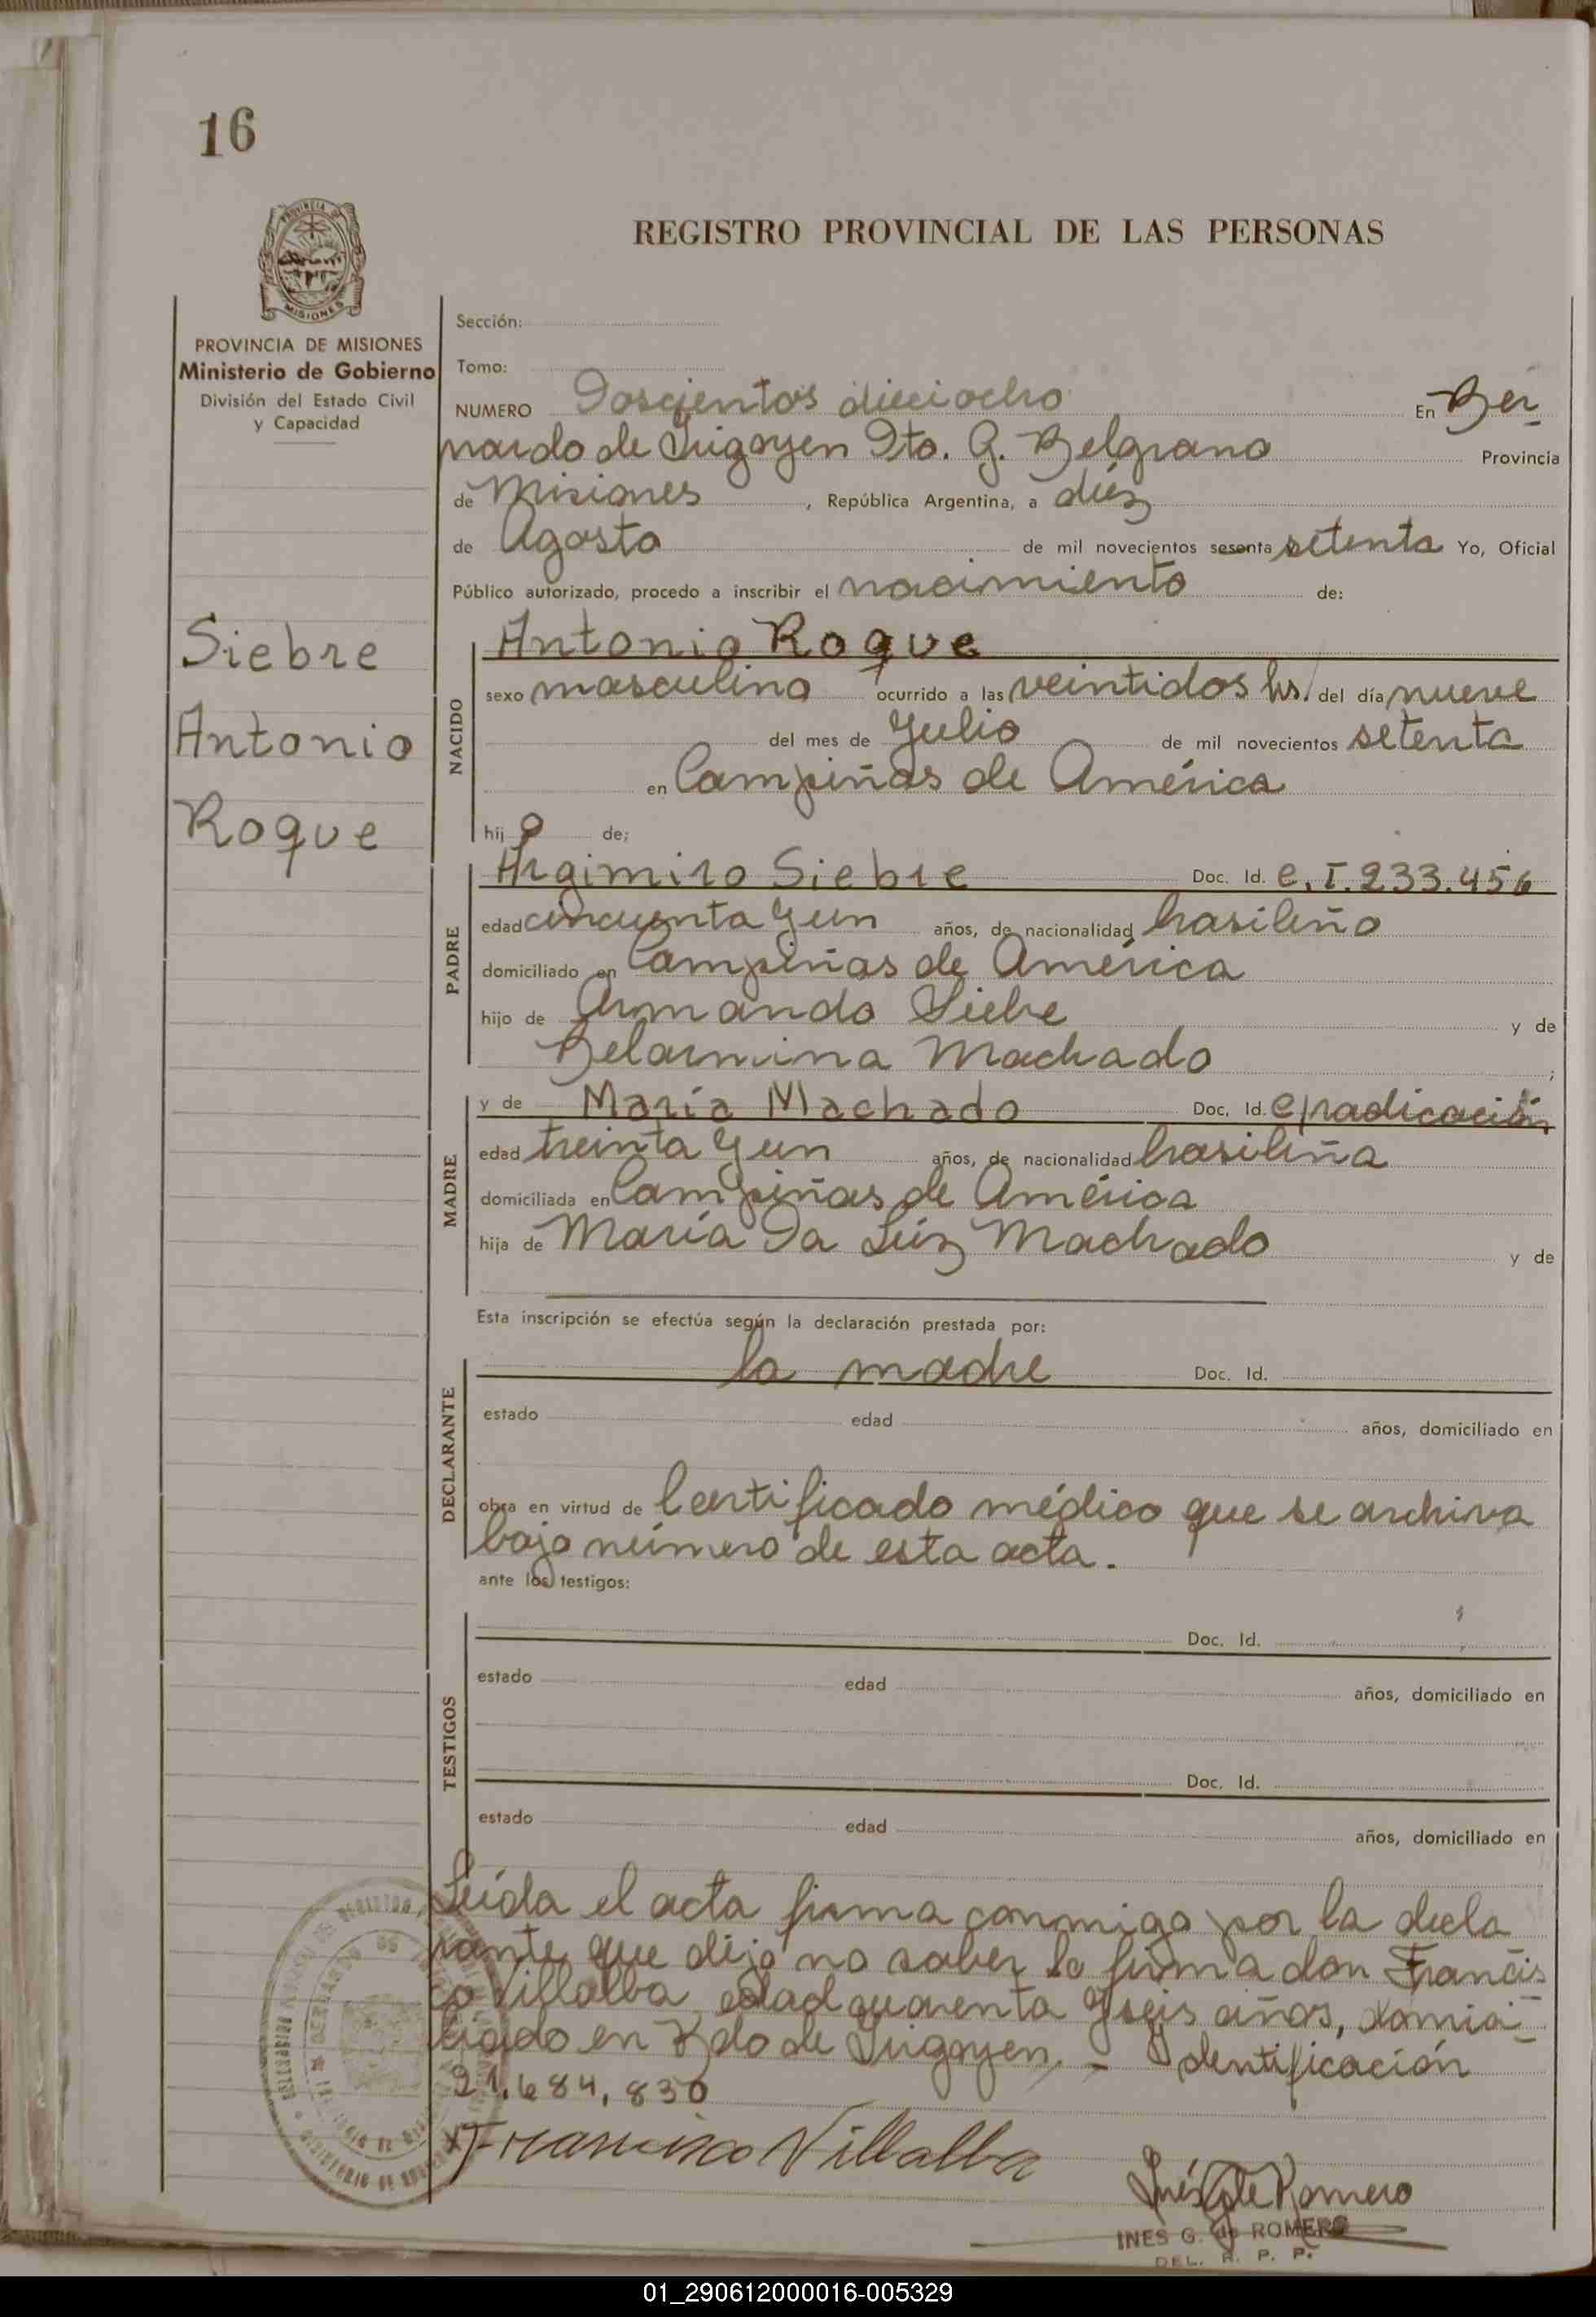 16
PROVINCIA
MISIONES
PROVINCIA DE MISIONES
Ministerio de Gobierno
División del Estado Civil
y Capacidad
Siebre
Antonio
Roque
REGISTRO PROVINCIAL DE LAS PERSONAS
Sección:
Tomo:
NUMERO Doscientos dieciocho En Ber
nardo de Irigoyen Dto. G. Belgrano Provincia
de Misiones , República Argentina, a diéz
de Agosto de mil novecientos sesenta setenta Yo, Oficial
Público autorizado, procedo a inscribir el nacimiento de:
NACIDO
Antonio Roque
sexo masculino ocurrido a las veintidos hs. del día nueve
del mes de Julio de mil novecientos setenta
en Campiñas de América
hij o de;
PADRE
Argimiro Siebre Doc. Id. C.I. 233.456
edad cincuenta y un años, de nacionalidad brasileño
domiciliado en Campiñas de América
hijo de Armando Siebre y de
Belarmina Machado ;
MADRE
y de María Machado Doc. Id. C/radicación
edad treinta y un años, de nacionalidad brasileña
domiciliada en Campiñas de América
hija de María Da Lúz Machado y de
Esta inscripción se efectúa según la declaración prestada por:
DECLARANTE
la madre Doc. Id.
estado edad años, domiciliado en
obra en virtud de Certificado médico que se archiva
bajo número de esta acta.
ante los testigos:
TESTIGOS
Doc. Id.
estado edad años, domiciliado en
Doc. Id.
estado edad años, domiciliado en
Leída el acta firma conmigo por la decla
rante que dijo no saber lo firma don Francis
co Villalba, edad cuarenta y seis años, domici-
liado en Bdo de Irigoyen, - Identificación
21.684.830
Francisco Villalba
Inés G de Romero
INES G. de ROMERO
DEL. R. P. P.
01_290612000016-005329